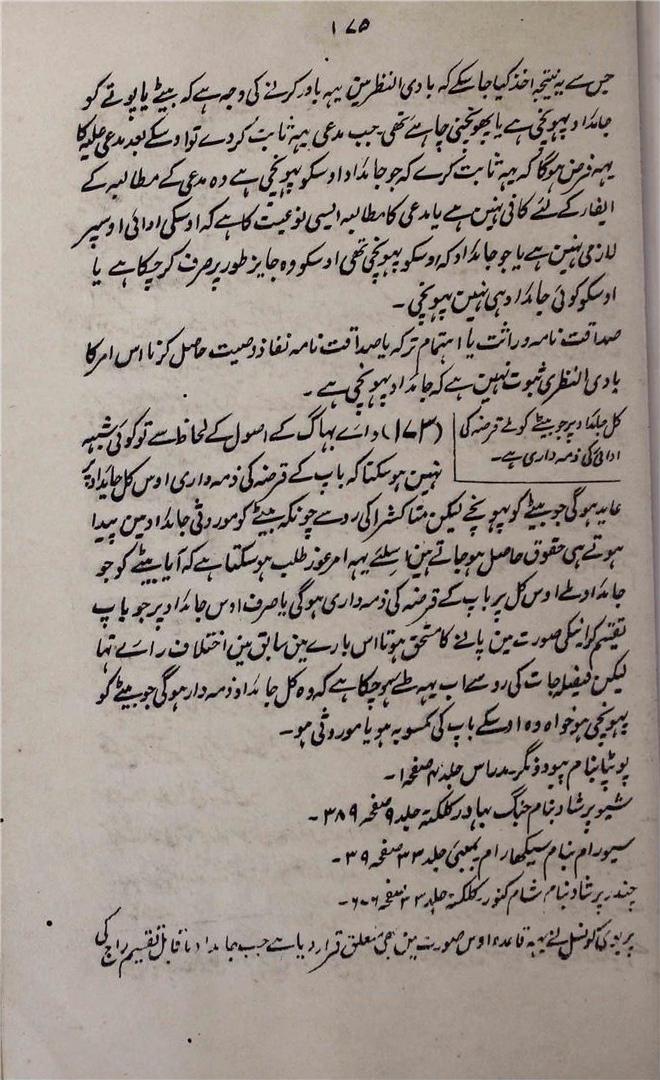 ۱۷۵
جس سے یہ نتیجہ اخذ کیا جا سکے کہ بادی النظر مین یہہ باور کرنے کی وجہ ہے کہ بیٹے یا پوتے کو
جائداد پہونچی ہے یا پہونچنی چاہئے تھی۔ جب مدعی یہہ ثابت کردے تو اوسکے بعد مدعی علیہ کا
یہہ فرض ہوگا کہ یہہ ثابت کرے کہ جو جائداد اوسکو پہونچی ہے وہ مدعی کے مطالبہ کے
ایفار کے لئے کافی نہین ہے یا مدعی کا مطالبہ ایسی نوعیت کا ہے کہ اوسکی ادائی اوسپر
لازمی نہین ہے یا جو جائداد کہ اوسکو پہونچی تھی اوسکو وہ جایز طور پر صرف کر چکا ہے یا
اوسکو کوئی جائداد ہی نہین پہونچی ۔
صداقت نامہ وراثت یا اہتمام ترکہ یا صداقت نامہ نفاذ وصیت حاصل کرنا اس امر کا
بادی النظری ثبوت نہین ہے کہ جائداد پہونچی ہے ۔
کل جائداد پر جو بیٹے کو ملے قرضہ کی
ادائی کی ذمہ داری ہے۔
(۱۷۳) دائے بہاگ کے اصول کے لحاظ سے تو کوئی شبہہ
نہین ہو سکتا کہ باپ کے قرضہ کی ذمہ داری اوس کل جائداد پر
عاید ہوگی جو بیٹے کو پہونچے لیکن متاکشرا کی رو سے چونکہ بیٹے کو موروثی جائداد مین پیدا
ہوتے ہی حقوق حاصل ہو جاتے ہین اسلئے یہہ امر غور طلب ہو سکتا ہے کہ آیا بیٹے کو جو
جائداد ملے اوس کل پر باپ کے قرضہ کی ذمہ داری ہوگی یا صرف اوس جائداد پر جو باپ
تقسیم کرانیکی صورت مین پانے کا مستحق ہوتا اس بارے مین سابق مین اختلاف رائے تہا
لیکن فیصلہ جات کی رو سے اب یہہ طے ہو چکا ہے کہ وہ کل جائداد ذمہ دار ہوگی جو بیٹے کو
پہونچی ہو خواہ وہ اوسکے باپ کی مکسوبہ ہو یا موروثی ہو۔
بنام مدراس جلد ۴ صفحہ ۱۔
شیو پرشاد بنام جنگ بہادر کلکتہ جلد ۹ صفحہ ۳۸۹۔
سیورام بنام سیکھارام بمبئی جلد ۳۳ صفحہ ۳۹۔
چندر پرشاد بنام شام کنور کلکتہ جلد ۳۳ صفحہ ۶۷۶۔
پریوی کونسل نے یہہ قاعدہ اوس صورت مین بھی متعلق قرار دیا ہے جب جائداد ناقابل تقسیم راج کی